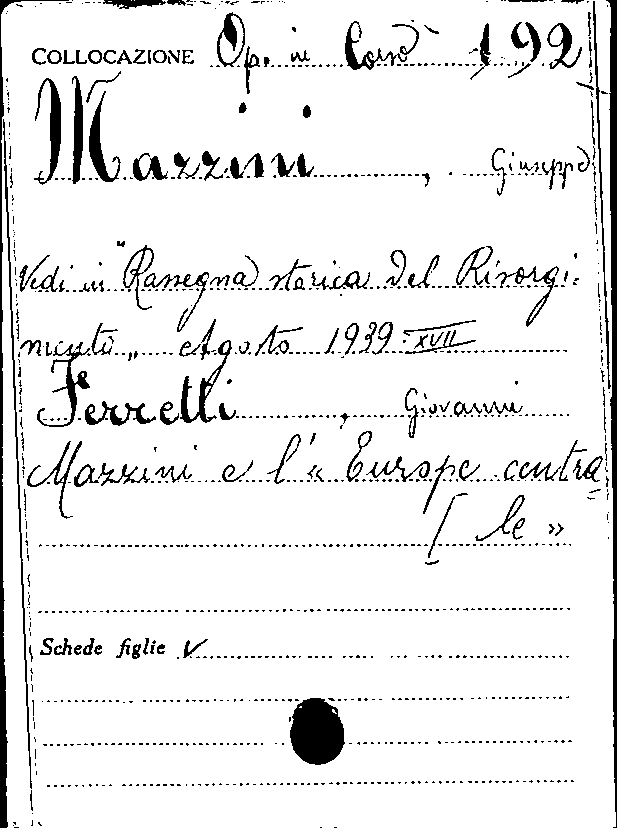 COLLOCAZIONE Op. in Corso 192
Mazzini, Giuseppe
Vedi in "Rassegna storica del Risorgi-
mento„ Agosto 1939-XVII
Ferretti, Giovanni
Mazzini e l'« Europe centra
[ le »
Schede figlie ✓